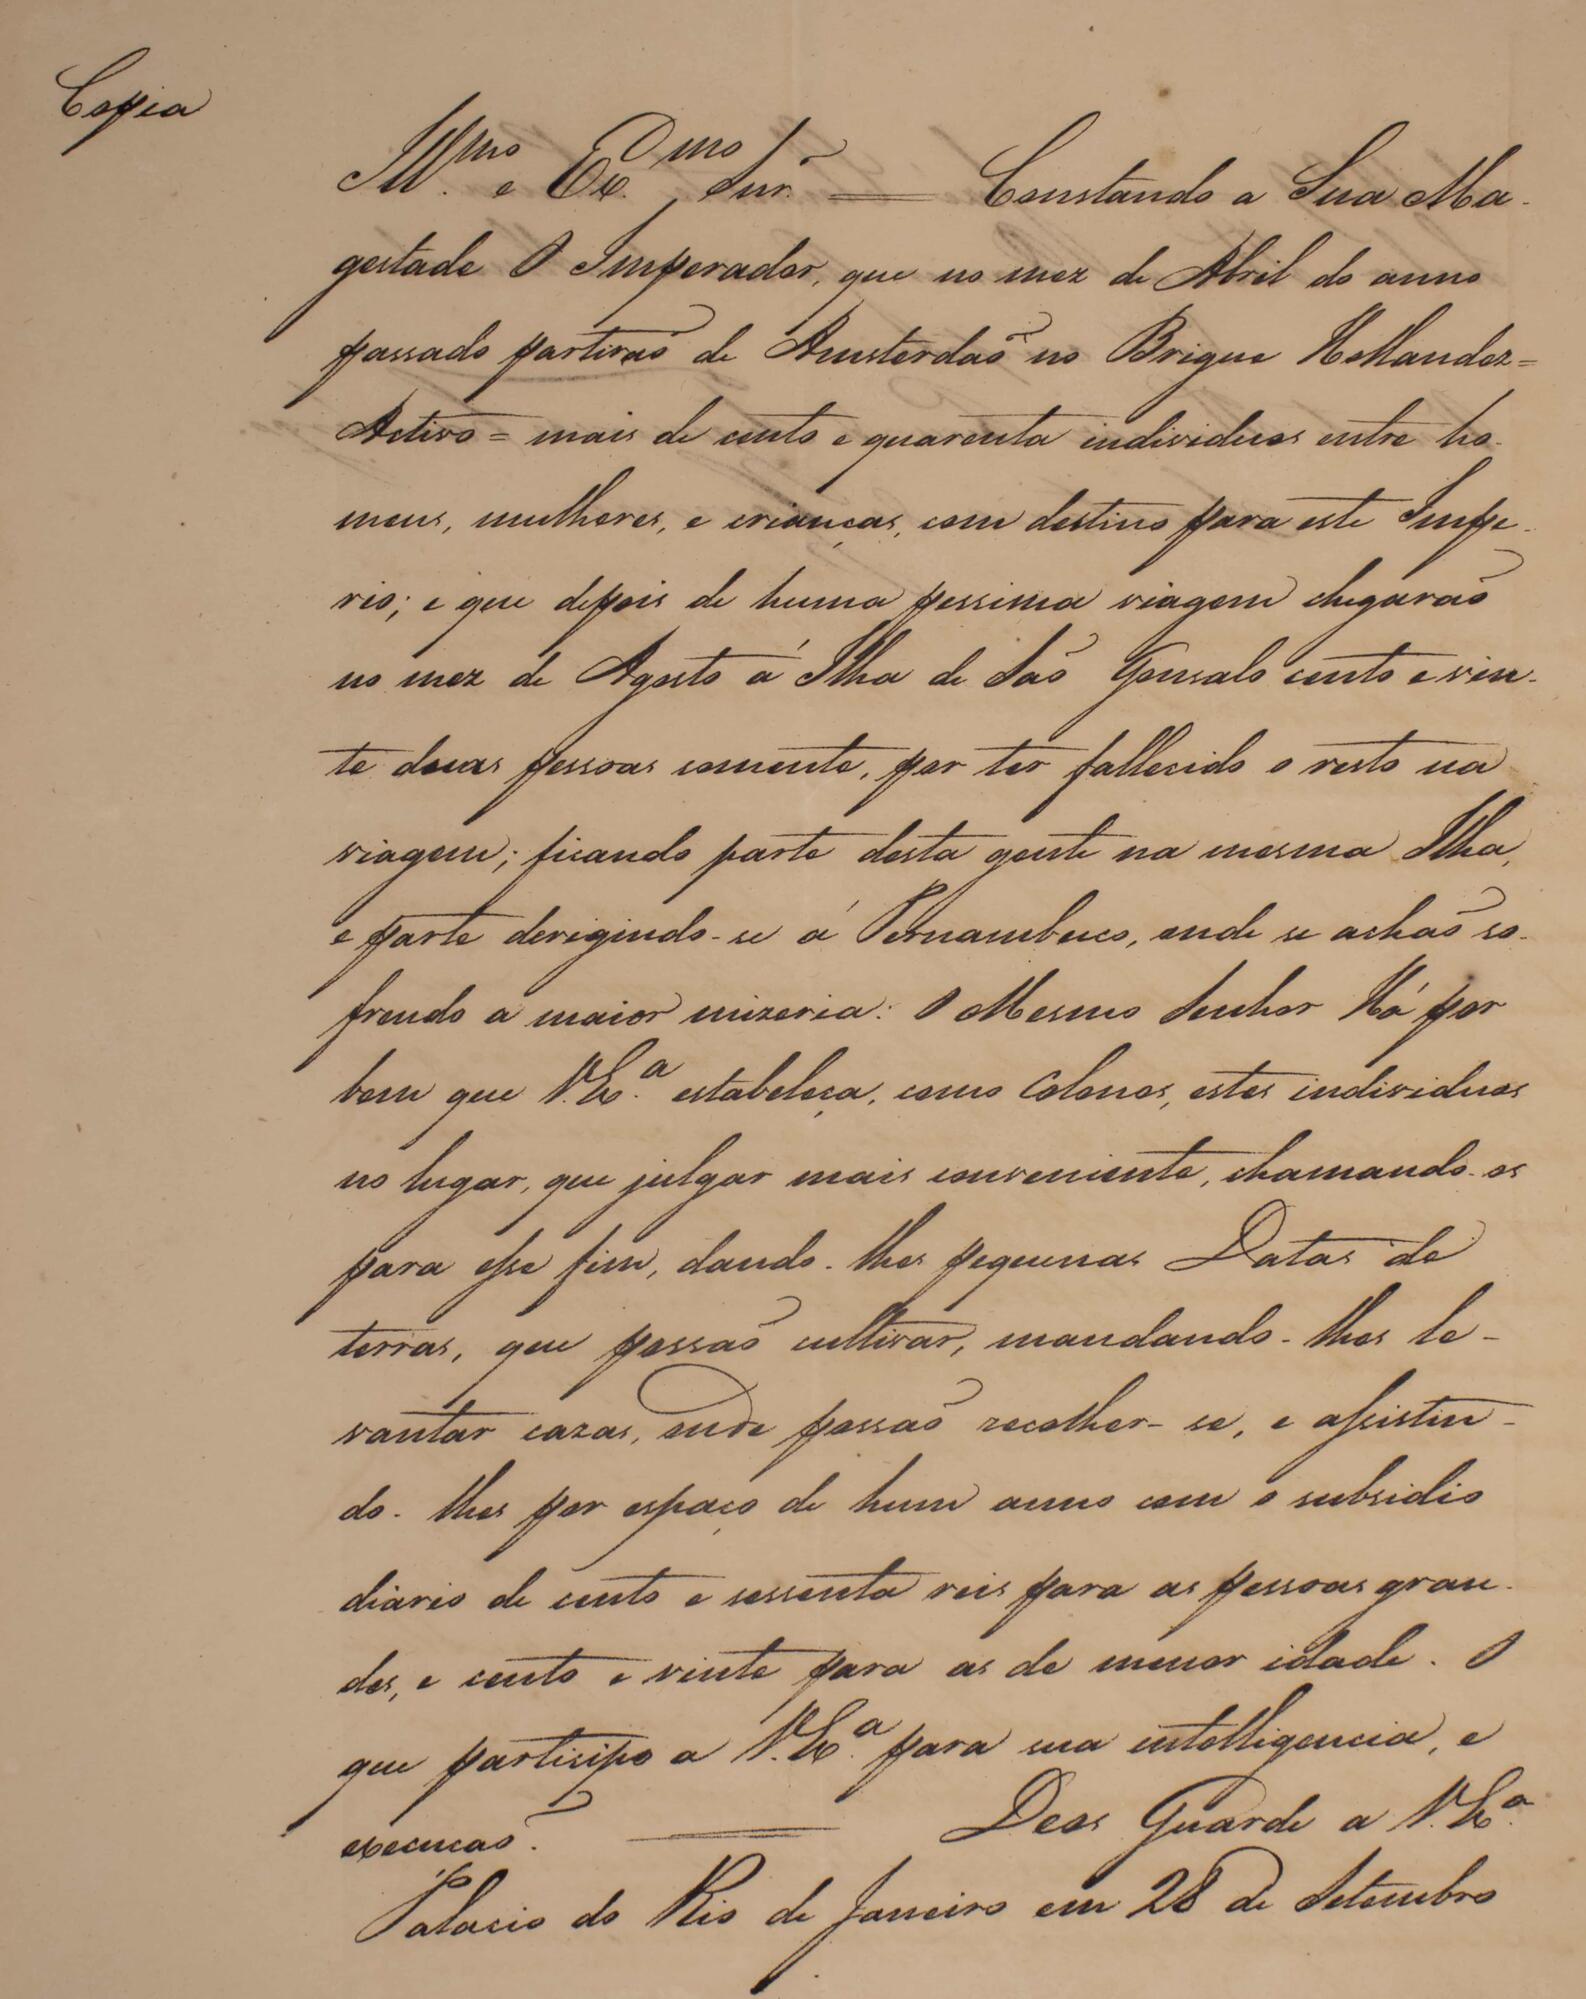 Copia
Illmo. e Exmo. Snr. = Constando a Sua Ma-
gestade O Imperador, que no mez de Abril do anno
passado partirão de Amsterdaõ no Brigue Hollandez =
Activo = mais de cento e quarenta individuos entre ho-
mens, mulheres, e crianças, com destino para este Impe-
rio; e que depois de huma pessima viagem chegaraõ
no mez de Agosto á Ilha de Saõ Gonsalo cento e vin-
te duas pessoas somente, por ter fallecido o resto na
viagem; ficando parte desta gente na mesma Ilha,
e parte derigindo-se á Pernambuco, onde se achaõ so-
frendo a maior mizeria: O Mesmo Senhor Há por
bem que V.Ex.a estabeleça, como Colonos, estes individuos
no lugar, que julgar mais conveniente, chamando-os
para esse fim, dando-lhes pequenas Datas de
terras, que possaõ cultivar, mandando-lhes le-
vantar cazas, onde possaõ recolher-se, e assistin-
do-lhes por espaço de hum anno com o subsidio
diario de cento e sessenta reis para as pessoas gran-
des, e cento e vinte para as de menor idade. O
que participo a V.Ex.a para sua intelligencia, e
execucaõ. = Deos Guarde a V.Ex.a
Palacio do Rio de Janeiro em 28 de Setembro